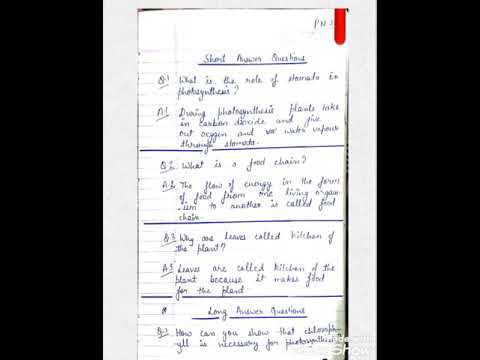 PN
Short Answer Questions
Q.1 What is the role of stomata in
photosynthesis?
A.1 During photosynthesis plants take
in carbon dioxide and give
out oxygen and water vapour
through stomata.
Q.2. What is a food chain?
A.2. The flow of energy in the form
of food from one living organ-
ism to another is called food
chain.
Q.3 Why are leaves called kitchen of
the plant?
A.3 Leaves are called kitchen of the
plant because it makes food
for the plant.
Long Answer Questions
Q.1 How can you show that chloroph-
yll is necessary for photosynthesis?